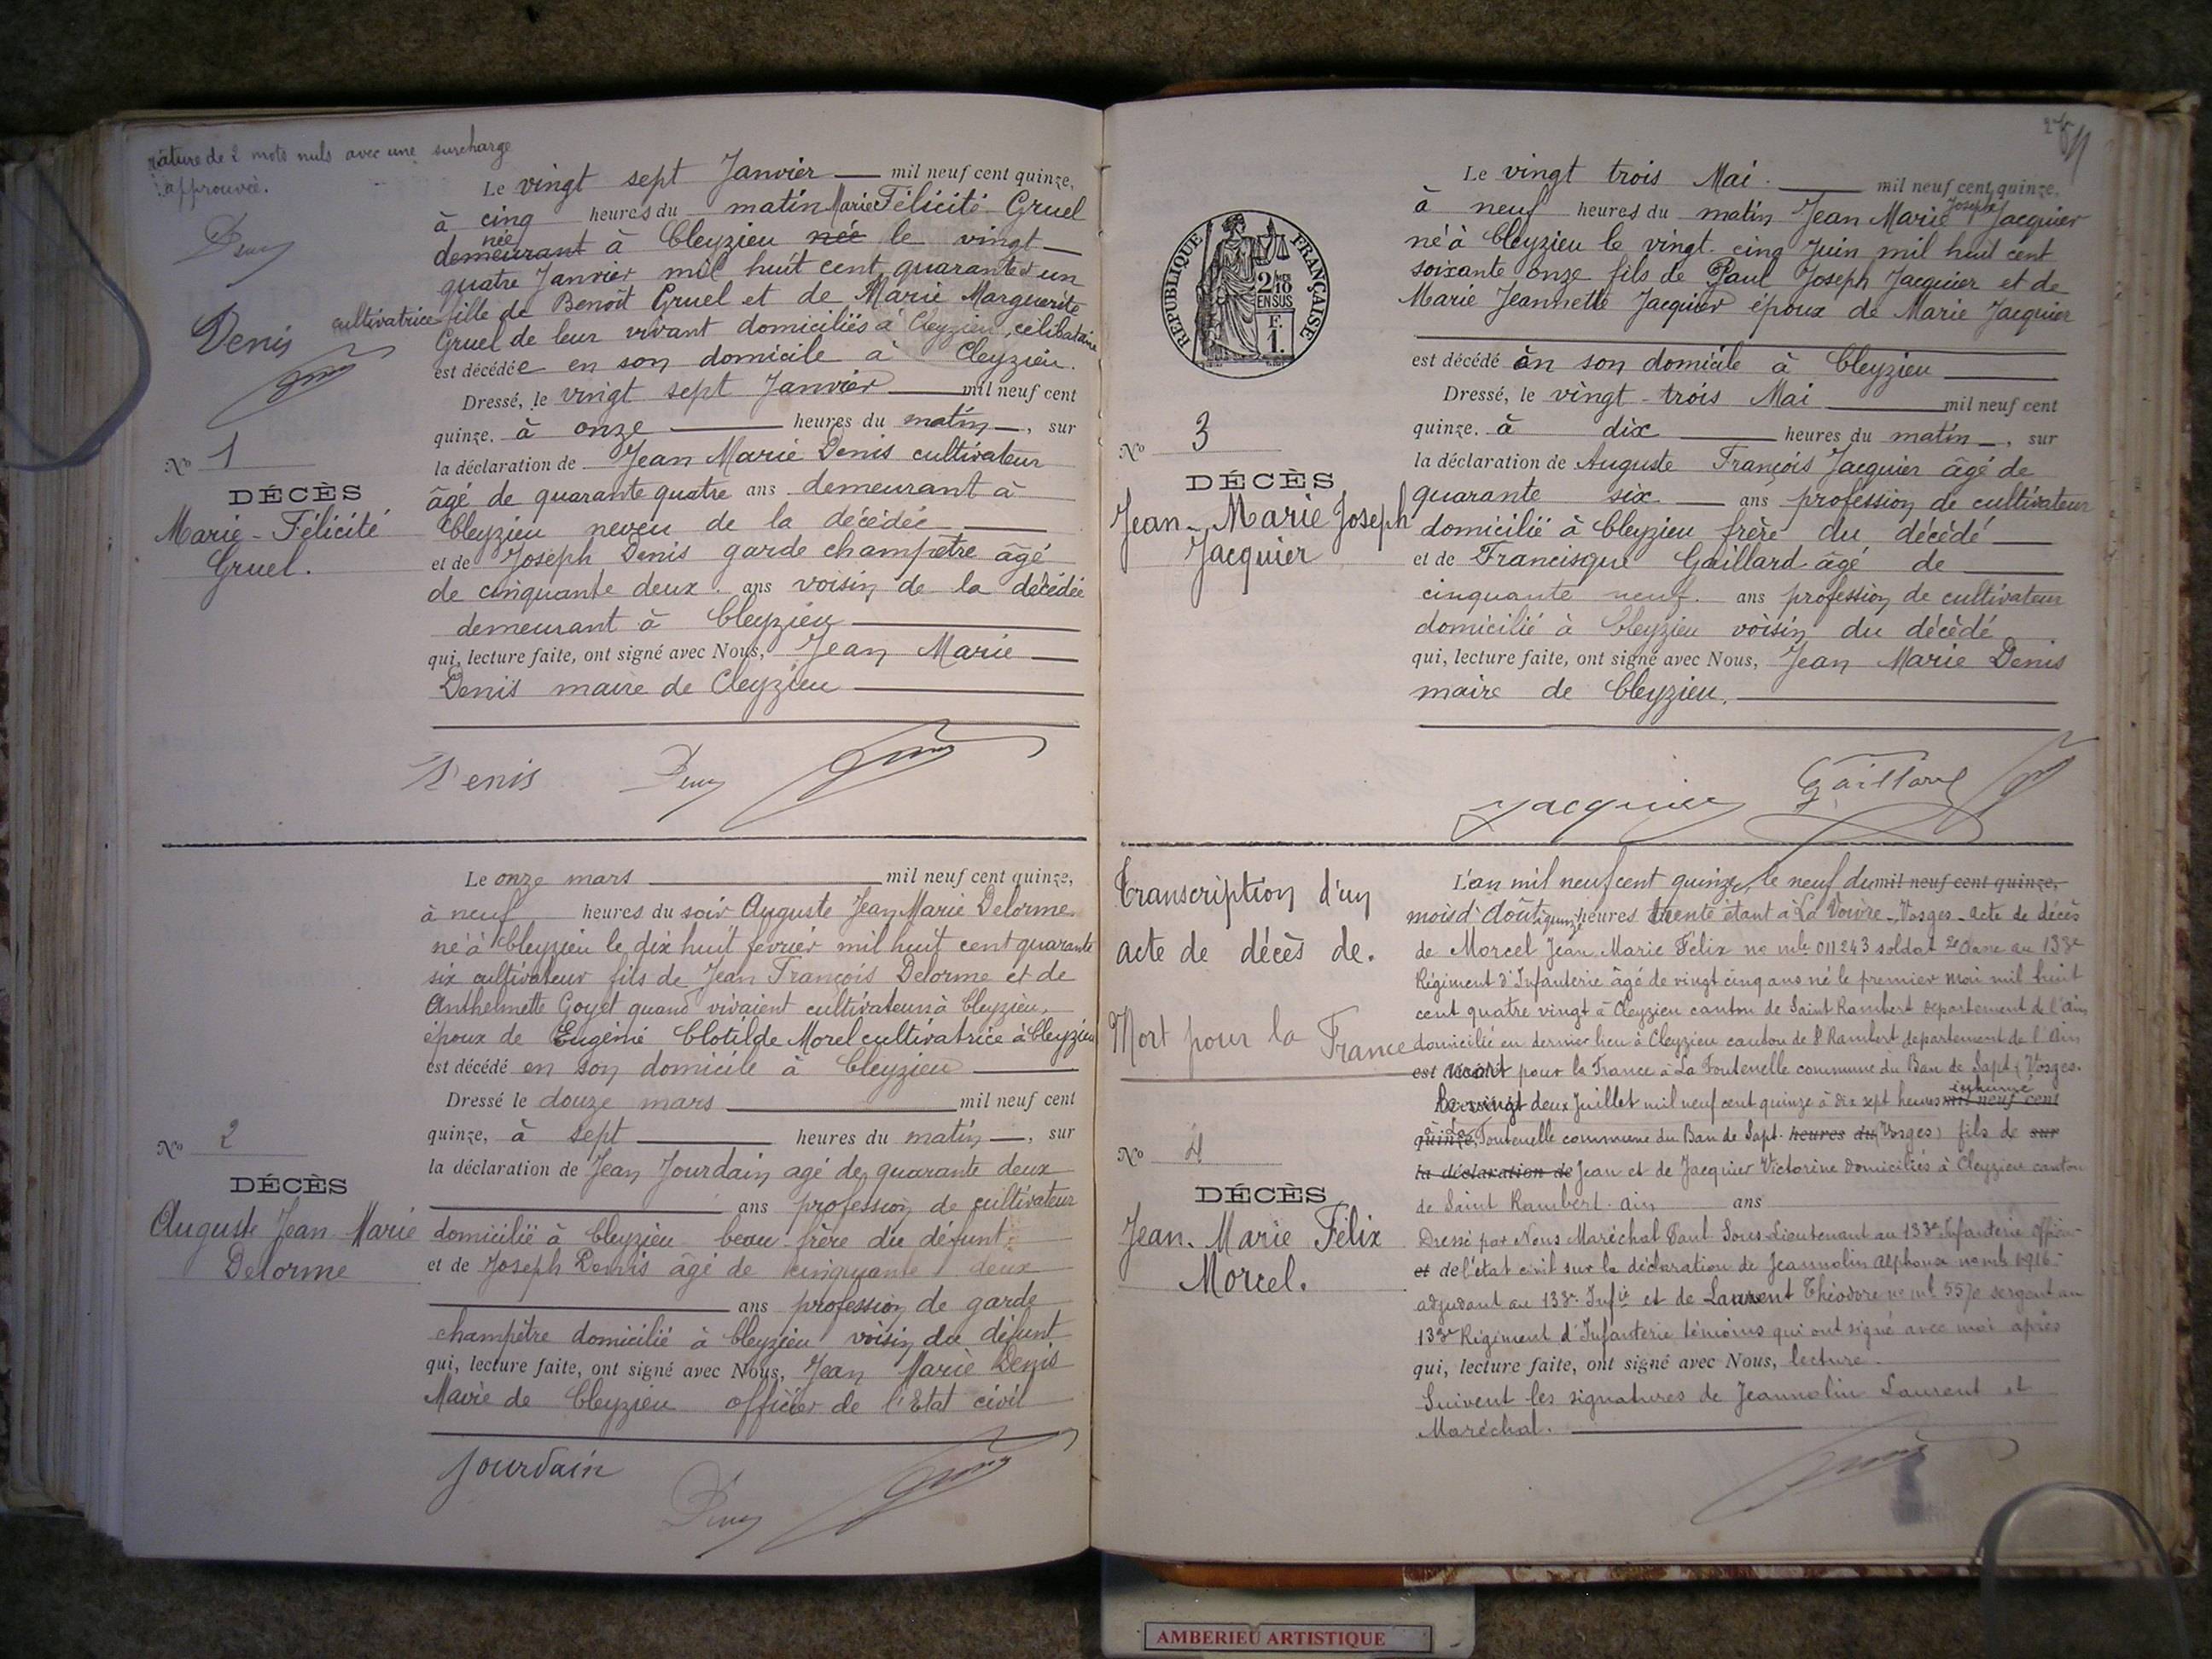 rature de 2 mots nuls avec une surcharge
approuvée.
Denis
N° 1
DÉCÈS
Marie-Félicité
Gruel.
Le vingt sept Janvier mil neuf cent quinze,
à cinq heures du matin Marie Félicité Gruel
demeurant née à Cleyzieu née le vingt
quatre Janvier mil huit cent quarante et un
cultivatrice fille de Benoît Gruel et de Marie Marguerite
Gruel de leur vivant domiciliés à Cleyzieu, célibataire
est décédée en son domicile à Cleyzieu.
Dressé, le vingt sept Janvier mil neuf cent
quinze, à onze heures du matin, sur
la déclaration de Jean Marie Denis cultivateur
âgé de quarante quatre ans demeurant à
Cleyzieu neveu de la décédée
et de Joseph Denis garde champêtre âgé
de cinquante deux ans voisin de la décédée
demeurant à Cleyzieu
qui, lecture faite, ont signé avec Nous, Jean Marie
Denis maire de Cleyzieu
Denis
N° 2
DÉCÈS
Auguste Jean Marie
Delorme
Le onze mars mil neuf cent quinze,
à neuf heures du soir Auguste Jean Marie Delorme
né à Cleyzieu le dix huit février mil huit cent quarante
six cultivateur fils de Jean François Delorme et de
Anthelmette Goyet quand vivaient cultivateurs à Cleyzieu,
époux de Eugénie Clotilde Morel cultivatrice à Cleyzieu
est décédé en son domicile à Cleyzieu
Dressé le douze mars mil neuf cent
quinze, à sept heures du matin, sur
la déclaration de Jean Jourdain agé de quarante deux
ans profession de cultivateur
domicilié à Cleyzieu beau-frère du défunt
et de Joseph Denis âgé de cinquante deux
ans profession de garde
champêtre domicilié à Cleyzieu voisin du défunt
qui, lecture faite, ont signé avec Nous, Jean Marie Denis
Maire de Cleyzieu officier de l'Etat civil
Jourdain
REPUBLIQUE FRANÇAISE
2/10
EN SUS
F.
1.
N° 3
DÉCÈS
Jean-Marie Joseph
Jacquier
Le vingt trois Mai mil neuf cent quinze,
à neuf heures du matin Jean Marie Joseph Jacquier
né à Cleyzieu le vingt-cinq Juin mil huit cent
soixante onze fils de Paul Joseph Jacquier et de
Marie Jeannette Jacquier époux de Marie Jacquier
est décédé en son domicile à Cleyzieu
Dressé, le vingt-trois Mai mil neuf cent
quinze, à dix heures du matin, sur
la déclaration de Auguste François Jacquier âgé de
quarante six ans profession de cultivateur
domicilié à Cleyzieu frère du décédé
et de Francisque Gaillard âgé de
cinquante neuf ans profession de cultivateur
domicilié à Cleyzieu voisin du décédé
qui, lecture faite, ont signé avec Nous, Jean Marie Denis
maire de Cleyzieu.
Jacquier Gaillard
Transcription d'un
acte de décès de.
Mort pour la France
N° 4
DÉCÈS
Jean-Marie Félix
Morcel.
L'an mil neuf cent quinze, le neuf du mil neuf cent quinze,
mois d'Août quinze heures trente étant à La Voivre-Vosges-acte de décès
de Morcel Jean Marie Félix no mle 011243 soldat 2e classe au 133e
Régiment d'Infanterie âgé de vingt cinq ans né le premier mai mil huit
cent quatre vingt à Cleyzieu canton de Saint Rambert département de l'Ain
domicilié en dernier lieu à Cleyzieu canton de St Rambert département de l'Ain
est mort pour la France à La Fontenelle commune du Ban de Sapt (Vosges.
Le vingt deux Juillet mil neuf cent quinze à dix sept heures inhumé mil neuf cent
quinze, Fontenelle commune du Ban de Sapt. heures du (Vosges) fils de sur
la déclaration de Jean et de Jacquier Victorine domiciliés à Cleyzieu canton
de Saint Rambert. Ain ans
Dressé par Nous Maréchal Paul Sous-Lieutenant au 133e Infanterie officier
et de l'état civil sur la déclaration de Jeannolin Alphonse no mle 1916
adjudant au 133e Infie et de Laurent Théodore no mle 5570 sergent au
133e Régiment d'Infanterie témoins qui ont signé avec moi après
qui, lecture faite, ont signé avec Nous, lecture.
Suivent les signatures de Jeannolin Laurent et
Maréchal.
AMBERIEU ARTISTIQUE